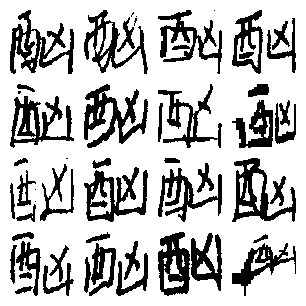 酗酗酗酗
酗酗酗酗
酗酗酗酗
酗酗酗酗